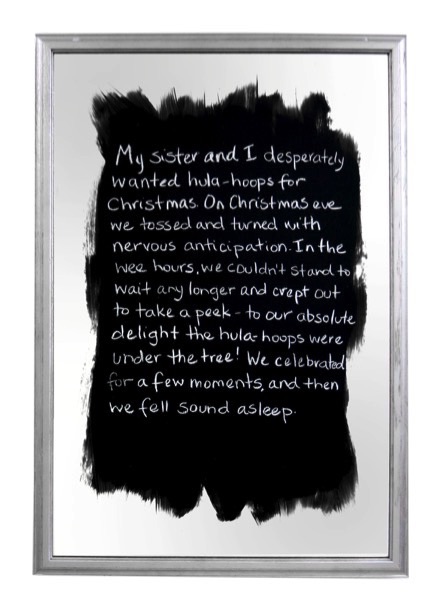 My sister and I desperately
wanted hula-hoops for
Christmas. On Christmas eve
we tossed and turned with
nervous anticipation. In the
wee hours, we couldn't stand to
wait any longer and crept out
to take a peek - to our absolute
delight the hula-hoops were
under the tree! We celebrated
for a few moments, and then
we fell sound asleep.